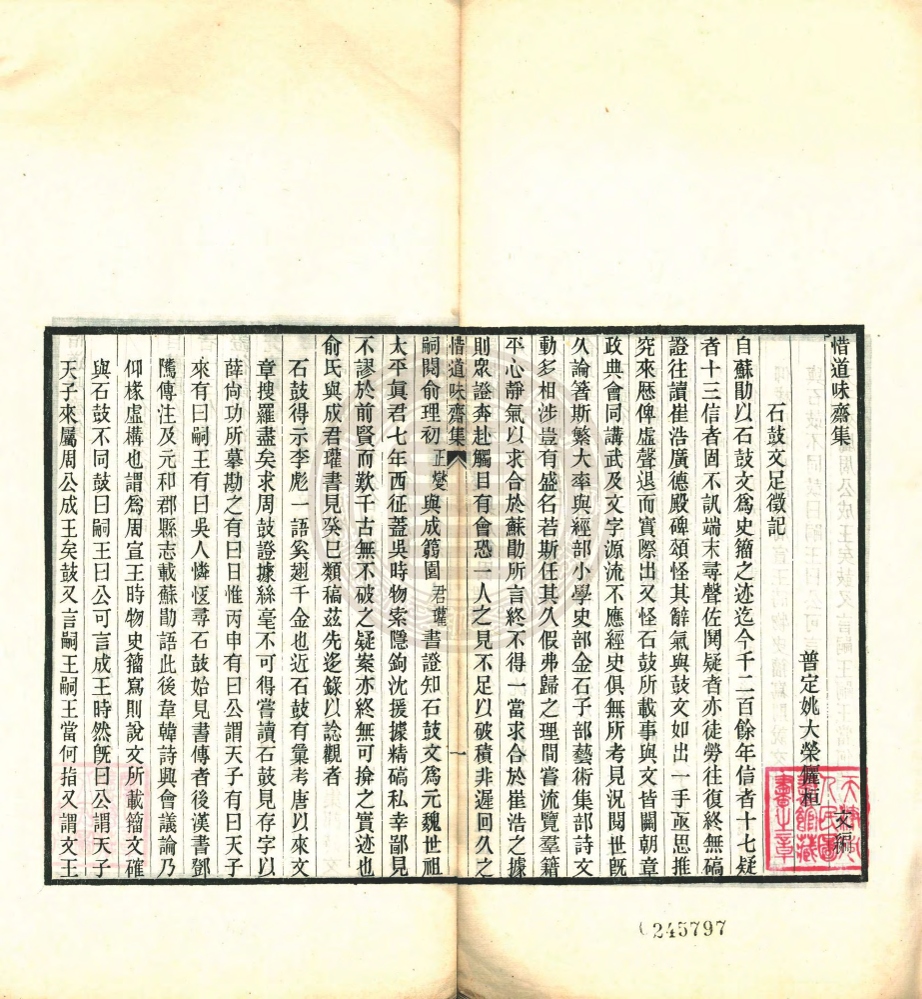 惜道味齋集
文編
石鼓文足徵記
普定姚大榮儷桓
自蘇勖以石鼓文爲史籀之迹迄今千二百餘年信者十七疑
者十三信者固不訊端末尋聲佐鬨疑者亦徒勞往復終無碻
證往讀崔浩廣德殿碑頌怪其辭氣與鼓文如出一手亟思推
究來厯俾虛聲退而實際出又怪石鼓所載事與文皆關朝章
政典會同講武及文字源流不應經史俱無所考見況閱世旣
久論箸斯繁大率與經部小學史部金石子部藝術集部詩文
動多相涉豈有盛名若斯任其久假弗歸之理間嘗流覽羣籍
平心靜氣以求合於蘇勖所言終不得一當求合於崔浩之據
則眾證奔赴觸目有會恐一人之見不足以破積非遲回久之
惜道味齋集
一
嗣閱俞理初正燮與成篛園君瓘書證知石鼓文爲元魏世祖
太平眞君七年西征蓋吳時物索隱鉤沈援據精碻私幸鄙見
不謬於前賢而歎千古無不破之疑案亦終無可揜之實迹也
俞氏與成君瓘書見癸巳類稿茲先迻錄以諗觀者
石鼓得示李彪一語奚翅千金也近石鼓有彙考唐以來文
章搜羅盡矣求周鼓證據絲毫不可得嘗讀石鼓見存字以
薛尙功所摹勘之有曰日惟丙申有曰公謂天子有曰天子
來有曰嗣王有曰吳人憐亟尋石鼓始見書傳者後漢書鄧
隲傳注及元和郡縣志載蘇勖語此後韋韓詩興會議論乃
仰椽虛構也謂爲周宣王時物史籀寫則說文所載籀文確
與石鼓不同鼓曰嗣王曰公可言成王時然旣曰公謂天子
天子來屬周公成王矣鼓又言嗣王嗣王當何指又謂文王
天津市人民圖書館藏書之章
245797